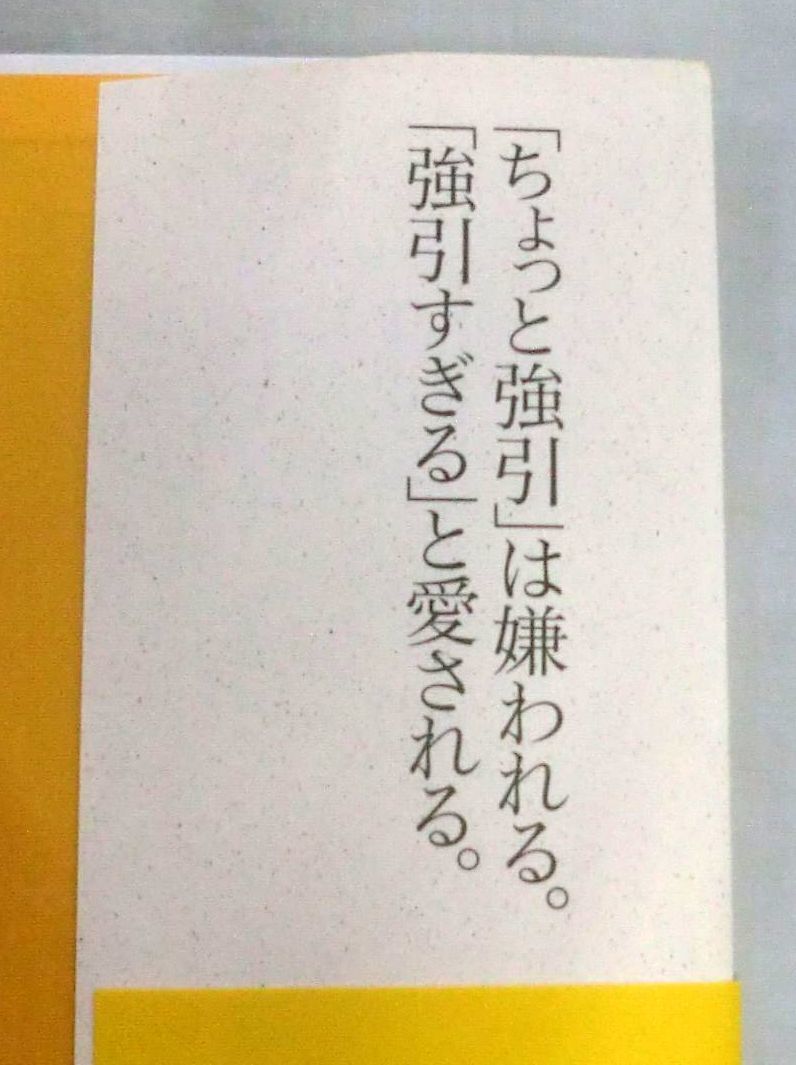 「ちょっと強引」は嫌われる。
「強引すぎる」と愛される。